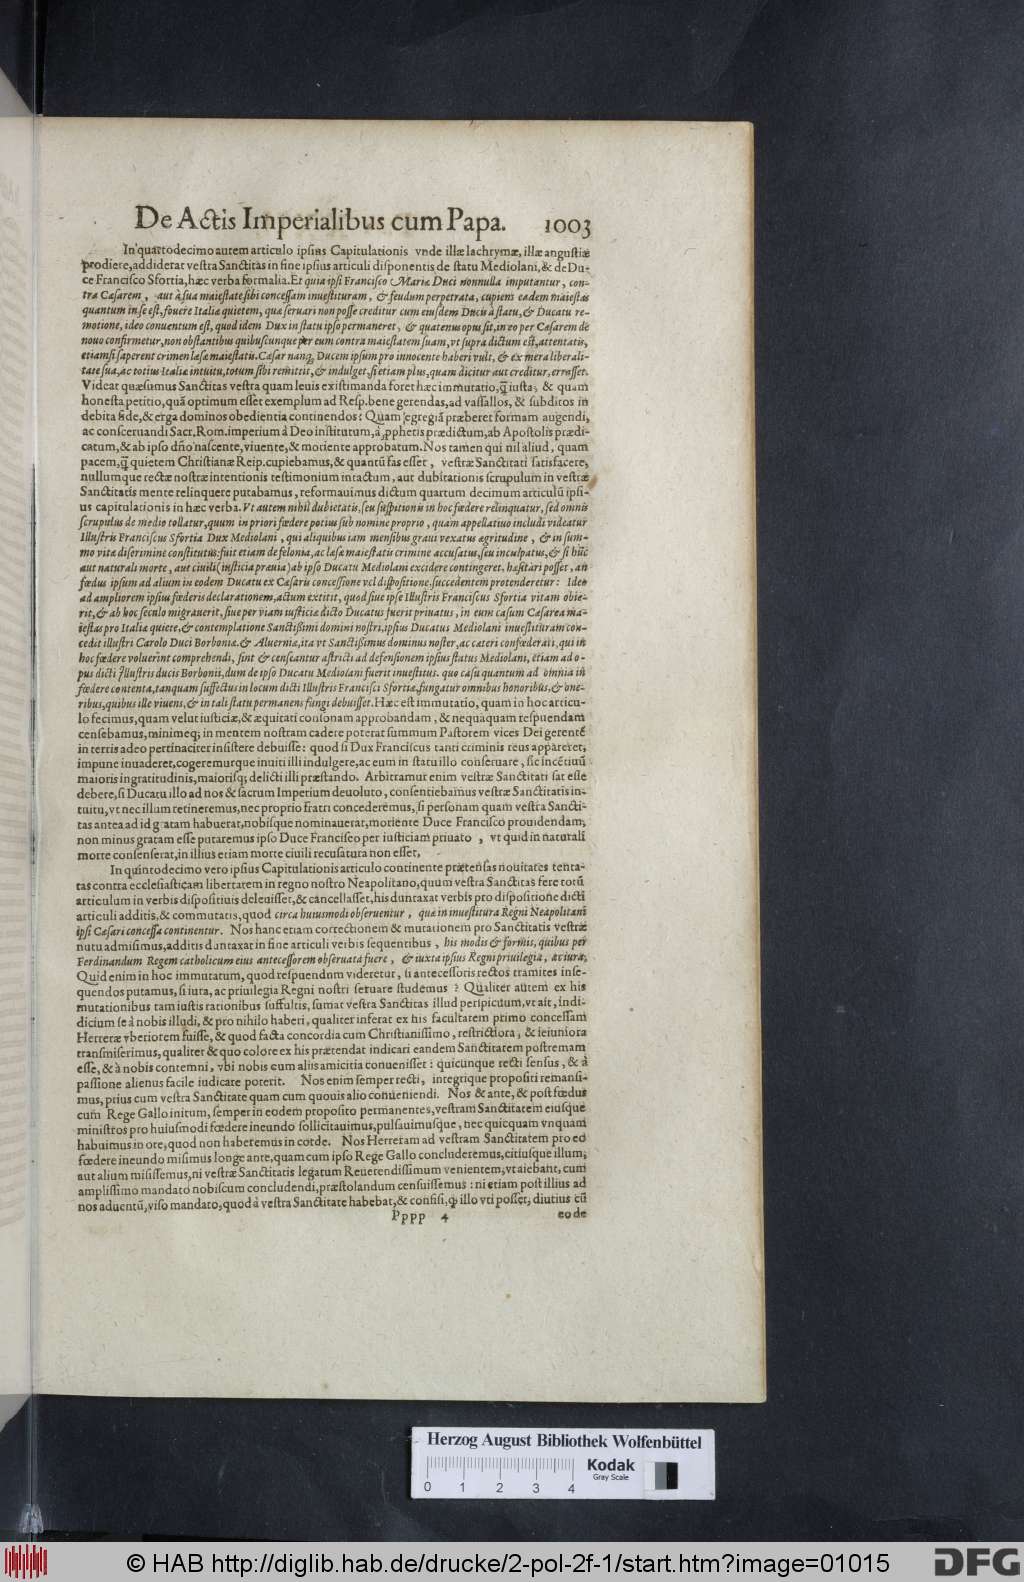 De Actis Imperialibus cum Papa. 1003
In quartodecimo autem articulo ipsius Capitulationis vnde illæ lachrymæ, illæ angustiæ
prodiere, addiderat vestra Sanctitas in fine ipsius articuli disponentis de statu Mediolani, & de Du-
ce Francisco Sfortia, hæc verba formalia. Et quia ipsi Francisco Mariæ Duci nonnulla imputantur, con-
tra Cæsarem, aut à sua maiestate sibi concessam inuestituram, & feudum perpetrata, cupiens eadem maiestas
quantum in se est, fouere Italiæ quietem, quæ seruari non posse creditur cum eiusdem Ducis à statu, & Ducatu re-
motione, ideo conuentum est, quod idem Dux in statu ipso permaneret, & quatenus opus sit, in eo per Cæsarem de
nouo confirmetur, non obstantibus quibuscunque per eum contra maiestatem suam, vt supra dictum est, attentatis,
etiamsi saperent crimen læsæ maiestatis. Cæsar nanq; Ducem ipsum pro innocente haberi vult, & ex mera liberali-
tate sua, ac totius Italiæ intuitu, totum sibi remittit, & indulget, si etiam plus, quam dicitur aut creditur, errasset.
Videat quæsumus Sanctitas vestra quam leuis existimanda foret hæc immutatio, q̃ iusta, & quam
honesta petitio, quã optimum esset exemplum ad Resp. bene gerendas, ad vassallos, & subditos in
debita fide, & erga dominos obedientia continendos: Quam egregiã præberet formam augendi,
ac conseruandi Sacr. Rom. imperium à Deo institutum, à ꝓphetis prædictum, ab Apostolis prædi-
catum, & ab ipso dño nascente, viuente, & moriente approbatum. Nos tamen qui nil aliud, quam
pacem, q̃ quietem Christianæ Reip. cupiebamus, & quantũ fas esset, vestræ Sanctitati satisfacere,
nullumque rectæ nostræ intentionis testimonium intactum, aut dubitationis scrupulum in vestræ
Sanctitatis mente relinquere putabamus, reformauimus dictum quartum decimum articulũ ipsi-
us capitulationis in hæc verba. Vt autem nihil dubietatis, seu suspitionis in hoc fœdere relinquatur, sed omnis
scrupulus de medio tollatur, quum in priori fœdere potius sub nomine proprio, quam appellatiuo includi videatur
Illustris Franciscus Sfortia Dux Mediolani, qui aliquibus iam mensibus graui vexatus ægritudine, & in sum-
mo vitæ discrimine constitutus: fuit etiam de felonia, ac læsæ maiestatis crimine accusatus, seu inculpatus, & si hũc
aut naturali morte, aut ciuili (iusticia præuia) ab ipso Ducatu Mediolani excidere contingeret, hæsitari posset, an
fœdus ipsum ad alium in eodem Ducatu ex Cæsaris concessione vel dispositione succedentem protenderetur: Ideo
ad ampliorem ipsius fœderis declarationem, actum extitit, quod siue ipse Illustris Franciscus Sfortia vitam obie-
rit, & ab hoc seculo migrauerit, siue per viam iusticiæ dicto Ducatus fuerit priuatus, in eum casum Cæsarea ma-
iestas pro Italiæ quiete, & contemplatione Sanctissimi domini nostri, ipsius Ducatus Mediolani inuestituram con-
cedit illustri Carolo Duci Borboniæ & Aluerniæ, ita vt Sanctissimus dominus noster, ac cæteri confœderati, qui in
hoc fœdere voluerint comprehendi, sint & censeantur astricti ad defensionem ipsius status Mediolani, etiam ad o-
pus dicti Illustris ducis Borbonii, dum de ipso Ducatu Mediolani fuerit inuestitus. quo casu quantum ad omnia in
fœdere contenta, tanquam suffectus in locum dicti Illustris Francisci Sfortiæ, fungatur omnibus honoribus, & one-
ribus, quibus ille viuens, & in tali statu permanens fungi debuisset. Hæc est immutatio, quam in hoc articu-
lo fecimus, quam velut iusticiæ, & æquitati consonam approbandam, & nequaquam respuendam
censebamus, minimeq; in mentem nostram cadere poterat summum Pastorem vices Dei gerentẽ
in terris adeo pertinaciter insistere debuisse: quod si Dux Franciscus tanti criminis reus appareret,
impune inuaderet, cogeremurque inuiti illi indulgere, ac eum in statu illo conseruare, sic incẽtiuũ
maioris ingratitudinis, maiorisq; delicti illi præstando. Arbitramur enim vestræ Sanctitati sat esse
debere, si Ducatu illo ad nos & sacrum Imperium deuoluto, consentiebamus vestræ Sanctitatis in-
tuitu, vt nec illum retineremus, nec proprio fratri concederemus, si personam quam vestra Sancti-
tas antea ad id gratam habuerat, nobisque nominauerat, moriente Duce Francisco prouidendam,
non minus gratam esse putaremus ipso Duce Francisco per iusticiam priuato, vt quid in naturali
morte consenserat, in illius etiam morte ciuili recusatura non esset.
In quintodecimo vero ipsius Capitulationis articulo continente prætensas nouitates tenta-
tas contra ecclesiasticam libertatem in regno nostro Neapolitano, quum vestra Sanctitas fere totũ
articulum in verbis dispositiuis deleuisset, & cancellasset, his duntaxat verbis pro dispositione dicti
articuli additis, & commutatis, quod circa huiusmodi obseruentur, quæ in inuestitura Regni Neapolitani
ipsi Cæsari concessa continentur. Nos hanc etiam correctionem & mutationem pro Sanctitatis vestræ
nutu admisimus, additis duntaxat in fine articuli verbis sequentibus, his modis & formis, quibus per
Ferdinandum Regem catholicum eius antecessorem obseruata fuere, & iuxta ipsius Regni priuilegia, ac iura.
Quid enim in hoc immutatum, quod respuendum videretur, si antecessoris rectos tramites inse-
quendos putamus, si iura, ac priuilegia Regni nostri seruare studemus? Qualiter autem ex his
mutationibus tam iustis rationibus suffultis, sumat vestra Sanctitas illud perspicuum, vt ait, indi-
dicium se à nobis illudi, & pro nihilo haberi, qualiter inferat ex his facultatem primo concessam
Herreræ vberiorem fuisse, & quod facta concordia cum Christianissimo, restrictiora, & ieiuniora
transmiserimus, qualiter & quo colore ex his prætendat indicari eandem Sanctitatem postremam
esse, & à nobis contemni, vbi nobis cum aliis amicitia conuenisset: quicunque recti sensus, & à
passione alienus facile iudicare poterit. Nos enim semper recti, integrique propositi remansi-
mus, prius cum vestra Sanctitate quam cum quouis alio conueniendi. Nos & ante, & post fœdus
cum Rege Gallo initum, semper in eodem proposito permanentes, vestram Sanctitatem eiusque
ministros pro huiusmodi fœdere ineundo sollicitauimus, pulsauimusque, nec quicquam vnquam
habuimus in ore, quod non haberemus in corde. Nos Herreram ad vestram Sanctitatem pro eo
fœdere ineundo misimus longe ante, quam cum ipso Rege Gallo concluderemus, citiusque illum,
aut alium misissemus, ni vestræ Sanctitatis legatum Reuerendissimum venientem, vt aiebant, cum
amplissimo mandato nobiscum concludendi, præstolandum censuissemus: ni etiam post illius ad
nos aduentũ, viso mandato, quod à vestra Sanctitate habebat, & confisi, ꝙ illo vti posset, diutius cũ
Pppp 4 eo de
Herzog August Bibliothek Wolfenbüttel
Kodak
Gray Scale
0 1 2 3 4
© HAB http://diglib.hab.de/drucke/2-pol-2f-1/start.htm?image=01015
DFG